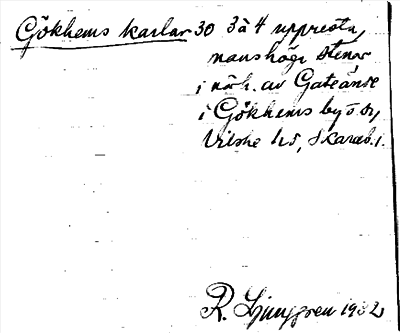 Gökhems karlar 30 3 à 4 uppresta,
manshöga stenar
i närh. av Gateänse
i Gökhems by ö. ðy,
Vilske hd, Skarab. l.
R. Ljunggren 1932